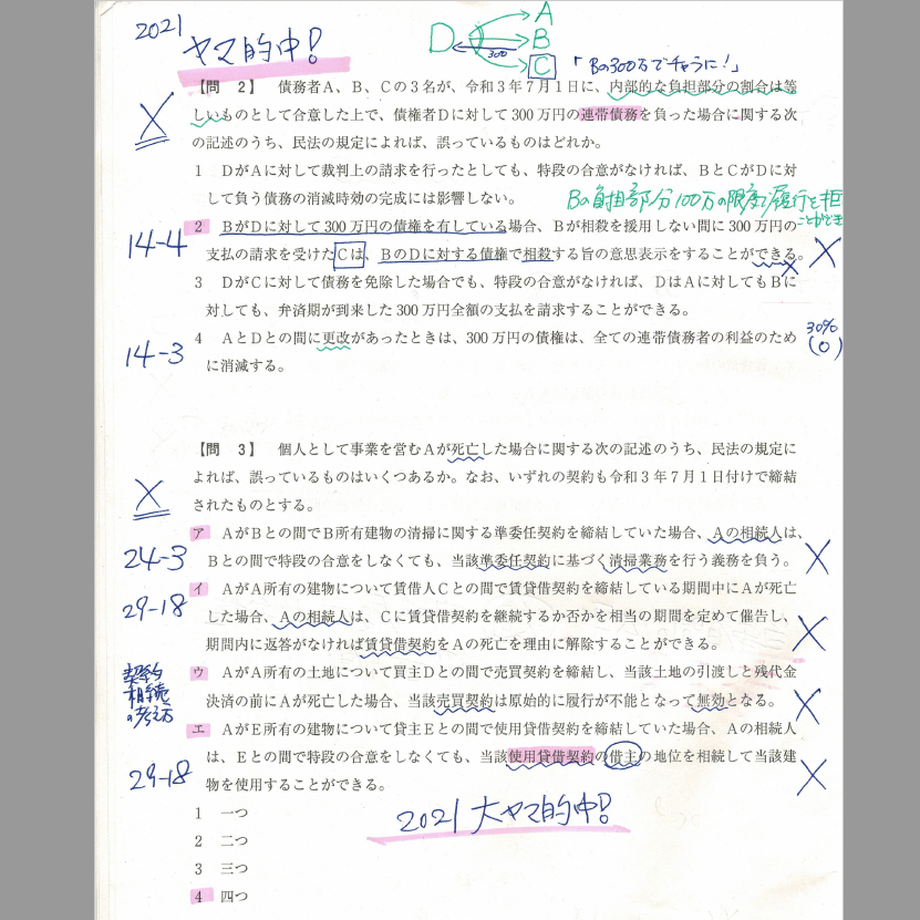 2021
ヤマ的中!
D A
B
C
300
「Bの300万でチャラに!」
【問 2】 債務者A、B、Cの3名が、令和3年7月1日に、内部的な負担部分の割合は等
しいものとして合意した上で、債権者Dに対して300万円の連帯債務を負った場合に関する次
の記述のうち、民法の規定によれば、誤っているものはどれか。
X
1 DがAに対して裁判上の請求を行ったとしても、特段の合意がなければ、BとCがDに対
して負う債務の消滅時効の完成には影響しない。
Bの負担部分100万の限度で履行を拒
ことができ
2 BがDに対して300万円の債権を有している場合、Bが相殺を援用しない間に300万円の
14-4
支払の請求を受けたCは、BのDに対する債権で相殺する旨の意思表示をすることができる。
X
3 DがCに対して債務を免除した場合でも、特段の合意がなければ、DはAに対してもBに
対しても、弁済期が到来した300万円全額の支払を請求することができる。
4 AとDとの間に更改があったときは、300万円の債権は、全ての連帯債務者の利益のため
に消滅する。
14-3
30%
(○)
【問 3】 個人として事業を営むAが死亡した場合に関する次の記述のうち、民法の規定に
よれば、誤っているものはいくつあるか。なお、いずれの契約も令和3年7月1日付けで締結
されたものとする。
X
ア AがBとの間でB所有建物の清掃に関する準委任契約を締結していた場合、Aの相続人は、
Bとの間で特段の合意をしなくても、当該準委任契約に基づく清掃業務を行う義務を負う。
24-3
X
イ AがA所有の建物について賃借人Cとの間で賃貸借契約を締結している期間中にAが死亡
した場合、Aの相続人は、Cに賃貸借契約を継続するか否かを相当の期間を定めて催告し、
期間内に返答がなければ賃貸借契約をAの死亡を理由に解除することができる。
29-18
X
ウ AがA所有の土地について買主Dとの間で売買契約を締結し、当該土地の引渡しと残代金
決済の前にAが死亡した場合、当該売買契約は原始的に履行が不能となって無効となる。
契約
相続
の考え方
X
エ AがE所有の建物について貸主Eとの間で使用貸借契約を締結していた場合、Aの相続人
は、Eとの間で特段の合意をしなくても、当該使用貸借契約の借主の地位を相続して当該建
物を使用することができる。
29-18
X
1 一つ
2021 大ヤマ的中!
2 二つ
3 三つ
4 四つ